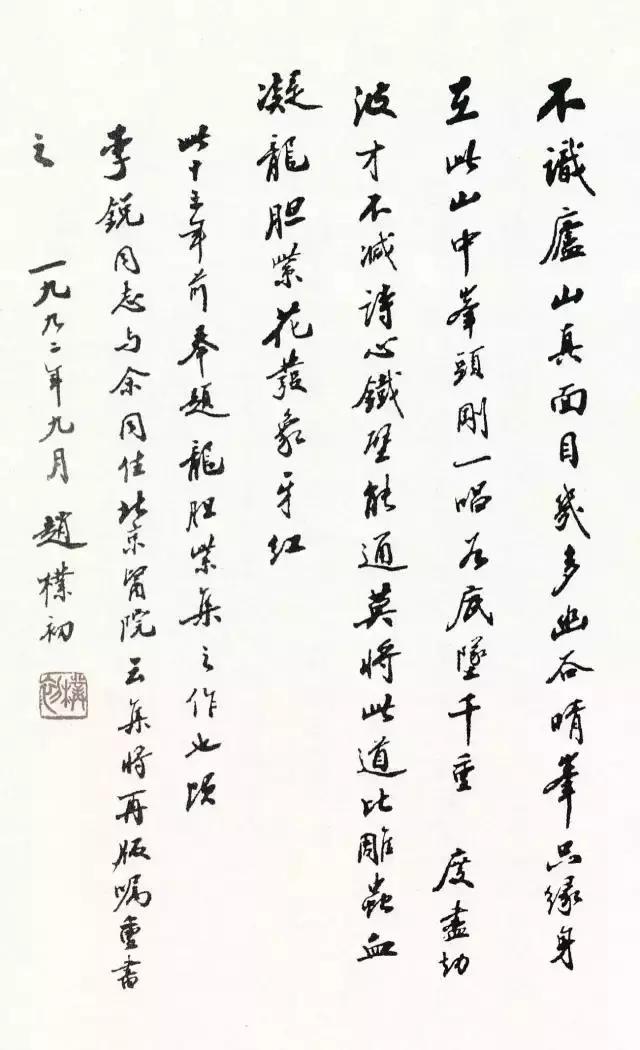 不識廬山真面目幾多幽谷晴峯只緣身
在此山中峯頭剛一唱谷底墜千重 度盡劫
波才不減詩心鐵壁能通莫將此道比雕蟲血
凝龍胆紫花發象牙紅
此十五年前奉題龍胆紫集之作也頃
李銳同志与余同住北京醫院云集將再版嘱重書
之 一九九二年九月 趙樸初
樸初